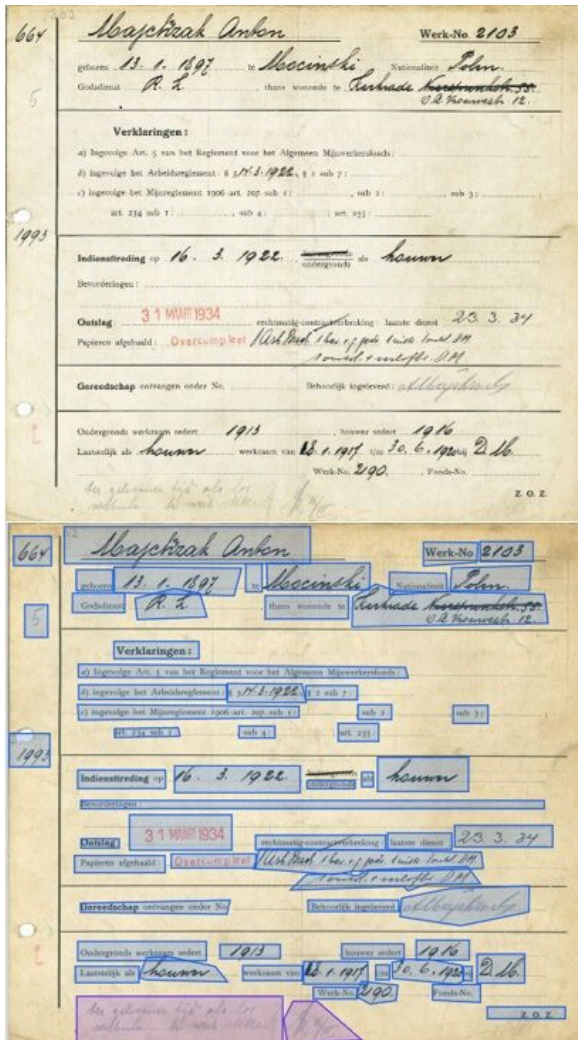 664 Majchrzak Anton Werk-No. 2103
geboren 13. 1. 1897 te Mocinski Nationaliteit Polen.
5 Godsdienst R. K. thans wonende te Kerkrade
O.L. Vrouwestr. 12.
Verklaringen :
a) Ingevolge Art. 5 van het Reglement voor het Algemeen Mijnwerkersfonds :
b) ingevolge het Arbeidsreglement : § 3 14.3.1922, § 2 sub 7 :
c) ingevolge het Mijnreglement 1906 art. 207 sub 1 : , sub 2 : , sub 3 :
art. 234 sub 1 : , sub 4 : ; art. 255 :
1993
Indiensttreding op 16. 3. 1922. ondergronds als houwer
Bevorderingen :
Ontslag : 31 MAART 1934 rechtmatig-contractverbreking : laatste dienst 23. 3. 34
Papieren afgehaald : Overcompleet
Gereedschap ontvangen onder No. Behoorlijk ingeleverd :
Ondergronds werkzaam sedert 1913 , houwer sedert 1916
Laatstelijk als houwer werkzaam van 18.1.1917 t/m 30.6.1920 bij D.M.
Werk-No. 2190. Fonds-No.
Z.O.Z.
664 Majchrzak Anton Werk-No 2103
geboren 13. 1. 1897 te Mocinski Nationaliteit Polen.
5 Godsdienst R. K. thans wonende te Kerkrade
O.L. Vrouwestr. 12.
Verklaringen :
a) Ingevolge Art. 5 van het Reglement voor het Algemeen Mijnwerkersfonds :
b) ingevolge het Arbeidsreglement : § 3 14.3.1922, § 2 sub 7 :
c) ingevolge het Mijnreglement 1906 art. 207 sub 1 : sub 2 : sub 3 :
art. 234 sub 1 sub 4 : art. 255 :
1993
Indiensttreding op 16. 3. 1922. ondergronds als houwer
Bevorderingen :
Ontslag 31 MAART 1934 rechtmatig-contractverbreking : laatste dienst 23. 3. 34
Papieren afgehaald : Overcompleet
Gereedschap ontvangen onder No Behoorlijk ingeleverd :
Ondergronds werkzaam sedert 1913 houwer sedert 1916
Laatstelijk als houwer werkzaam van 18.1.1917 t/m 30.6.1920 D.M.
Werk-No. 2190. Fonds-No.
Z.O.Z.